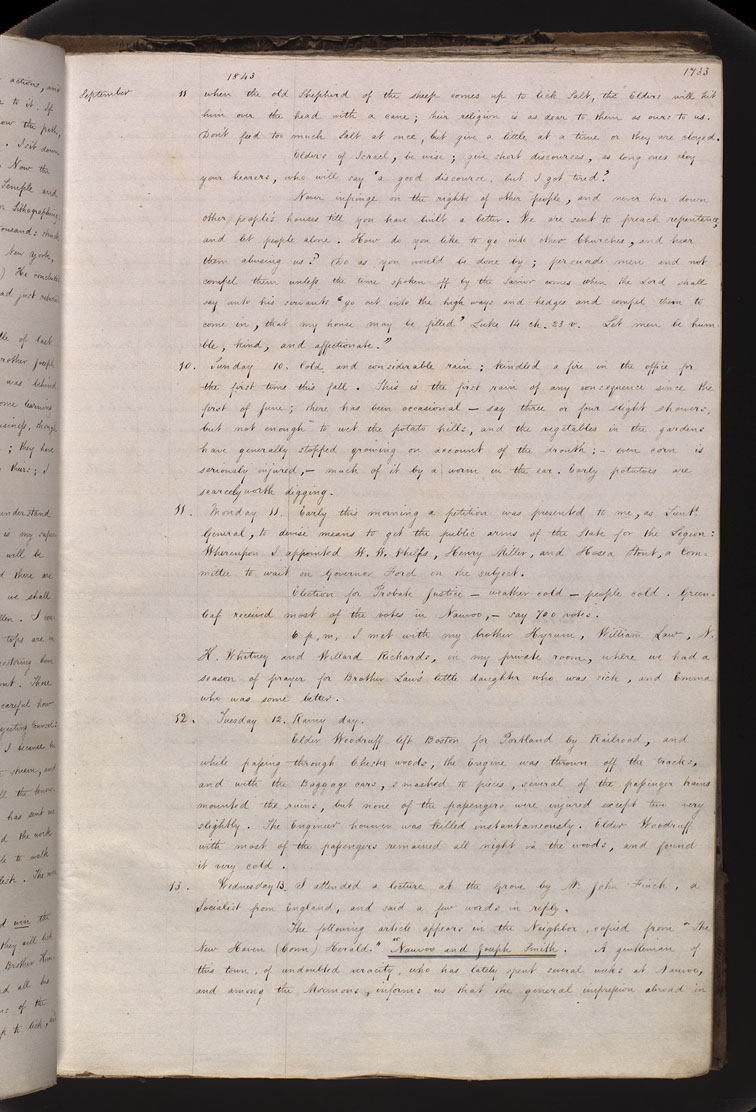 1843
1733
September 11 when the old Shepherd of the sheep comes up to lick Salt, the Elders will hit
him over the head with a cane; their religion is as dear to them as ours to us.
Don't feed too much Salt at once, but give a little at a time or they are cloyed.
Elders of Israel, be wise; give short discourses, as long ones cloy
your hearers, who will say "a good discourse, but I got tired."
Never infringe on the rights of other people, and never tear down
other people's houses till you have built a better. We are sent to preach repentance,
and let people alone. How do you like to go into other Churches, and hear
them abusing us? Do as you would be done by; persuade men and not
compel them unless the time spoken off by the Savior comes when the Lord shall
say unto his servants "go out into the high ways and hedges and compel them to
come in, that my house may be filled" Luke 14 ch. 23 v. Let men be hum-
ble, kind, and affectionate."
10. Sunday 10. Cold, and considerable rain; kindled a fire in the office for
the first time this fall. This is the first rain of any consequence since the
first of June; there has been occasional — say three or four slight showers,
but not enough to wet the potato hills, and the vegetables in the gardens
have generally stopped growing on account of the drouth; — even corn is
seriously injured, — much of it by a worm in the ear. Early potatoes are
scarcely worth digging.
11. Monday 11. Early this morning a petition was presented to me, as Lieut.
General, to devise means to get the public arms of the State for the Legion:
Whereupon I appointed W. W. Phelps, Henry Miller, and Hosea Stout, a Com-
mittee to wait on Governor Ford on the subject.
Election for Probate Justice — weather cold — people cold. Green-
leaf received most of the votes in Nauvoo, — say 700 votes.
6 p. m. I met with my brother Hyrum, William Law, N.
K. Whitney and Willard Richards, in my private room, where we had a
season of prayer for Brother Law's little daughter who was sick, and Emma
who was some better.
12. Tuesday 12. Rainy day.
Elder Woodruff left Boston for Portland by Railroad, and
while passing through Chester woods, the Engine was thrown off the tracks,
and with the Baggage cars, smashed to pieces, several of the passenger trains
mounted the ruins, but none of the passengers were injured except two very
slightly. The Engineer however was killed instantaneously. Elder Woodruff
with most of the passengers remained all night in the woods, and found
it very cold.
13. Wednesday 13. I attended a lecture at the Grove by Mr. John Finch, a
Socialist from England, and said a few words in reply.
The following article appears in the Neighbor, copied from "The
New Haven (Conn) Herald." "Nauvoo and Joseph Smith. A gentleman of
this town, of undoubted veracity, who has lately spent several weeks at Nauvoo,
and among the Mormons, informs us that the general impression abroad in